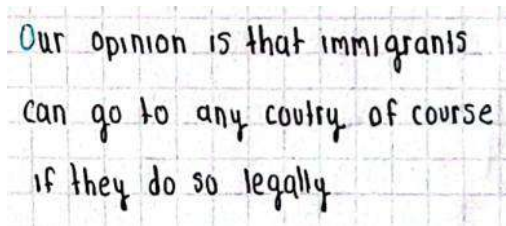 Our opinion is that immigrants
can go to any coutry of course
if they do so legally